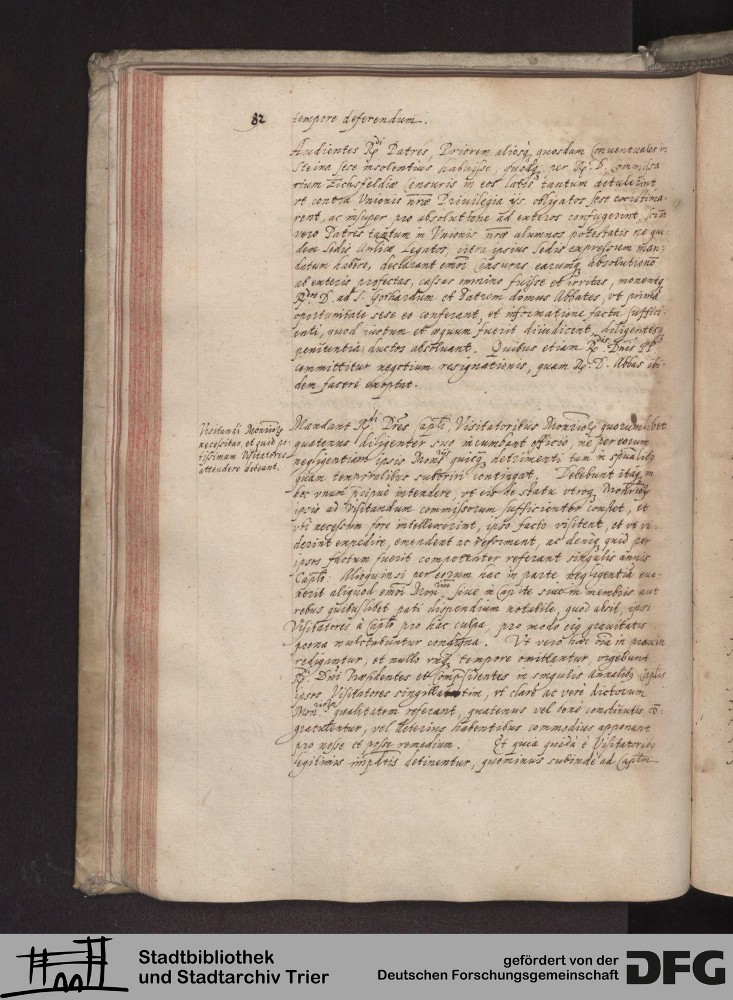 82
tempore deferendum.
Audientes R.di Patres, Priorem aliosq quosdam Conuentuales in
Steina sese insolentius habuisse, quodq per R. D. Commissa
rium Eichsfeldiæ Censuris in eos latis tantum detulerint
vt contra Vnionis nræ Priuilegia ijs obligatos sese existima
rent, ac insuper pro absolutione ad exteros confugerint,
vero Patres tantum in Vnionis nræ alumnos potestatis ne qui
dem Sedis Aplicæ Legatos, citra ipsius Sedis expressum man:
datum habere, declarant emõi Censuras earumq absolutiones
ab exteris profectas, cassas omnino fuisse et irritas, monentq
R.dos D. ad S. Gothardum et Patrem domus Abbates, vt prima
oportunitate sese eo conferant, et informatione facta suffici:
enti, quod iustum et æquum fuerit diiudicent, diligentesq
penitentia ductos absoluant. Quibus etiam R.dis Dnis PP
committitur negotium resignationis, quam R. D. Abbas ibi:
dem facere exoptat.
Visitandi Monriorq
necessitas, et quid po:
tissimum Visitatores
attendere debeant.
Mandant R.di Pres Capli Visitatoribus Monriorq quorumlibet
quatenus diligenter suo incumbant officio, ne per eorum
negligentiam ipsis Monrijs quicq detrimenti tam in spualibq
quam temporalibus suboriri contingat. Debebunt itaq in
hoc vnum pcipuè intendere, vt eis de statu vtroq Monriorq
ipsis ad visitandum commissorum sufficienter constet, et
vti necessum fore intellexerint, ipso facto visitent, et vt vi:
derint expedire, emendent ac reforment, ac deniq quid per
ipsos factum fuerit competenter referant singulis annis
Caplo: Alioquin si per eorum hac in parte negligentia eue:
nerit aliquod emõi Monrium siue in Capite siue in membris aut
rebus quibuslibet pati dispendium notabile, quod absit, ipsi
Visitatores à Caplo pro hac culpa, pro modo eiq grauitatis
poena mulctabuntur condigna. Vt vero hæc oia in praxin
redigantur, et nullo vnq tempore omittantur, vrgebunt
R. Dni Præsidentes et Compsidentes in singulis annalibq Caplis
ipsos Visitatores singillatim, vt clarè ac verè dictorum
Monriorq qualitatem referant, quatenus vel bene constitutis co:
gratulentur, vel deterius habentibus commodius apponant
pro nosse et posse remedium. Et quia quidã è Visitatoribq
legitimis impdtis detinentur, quominus subinde ad Caplm
Stadtbibliothek
und Stadtarchiv Trier
gefördert von der
Deutschen Forschungsgemeinschaft
DFG